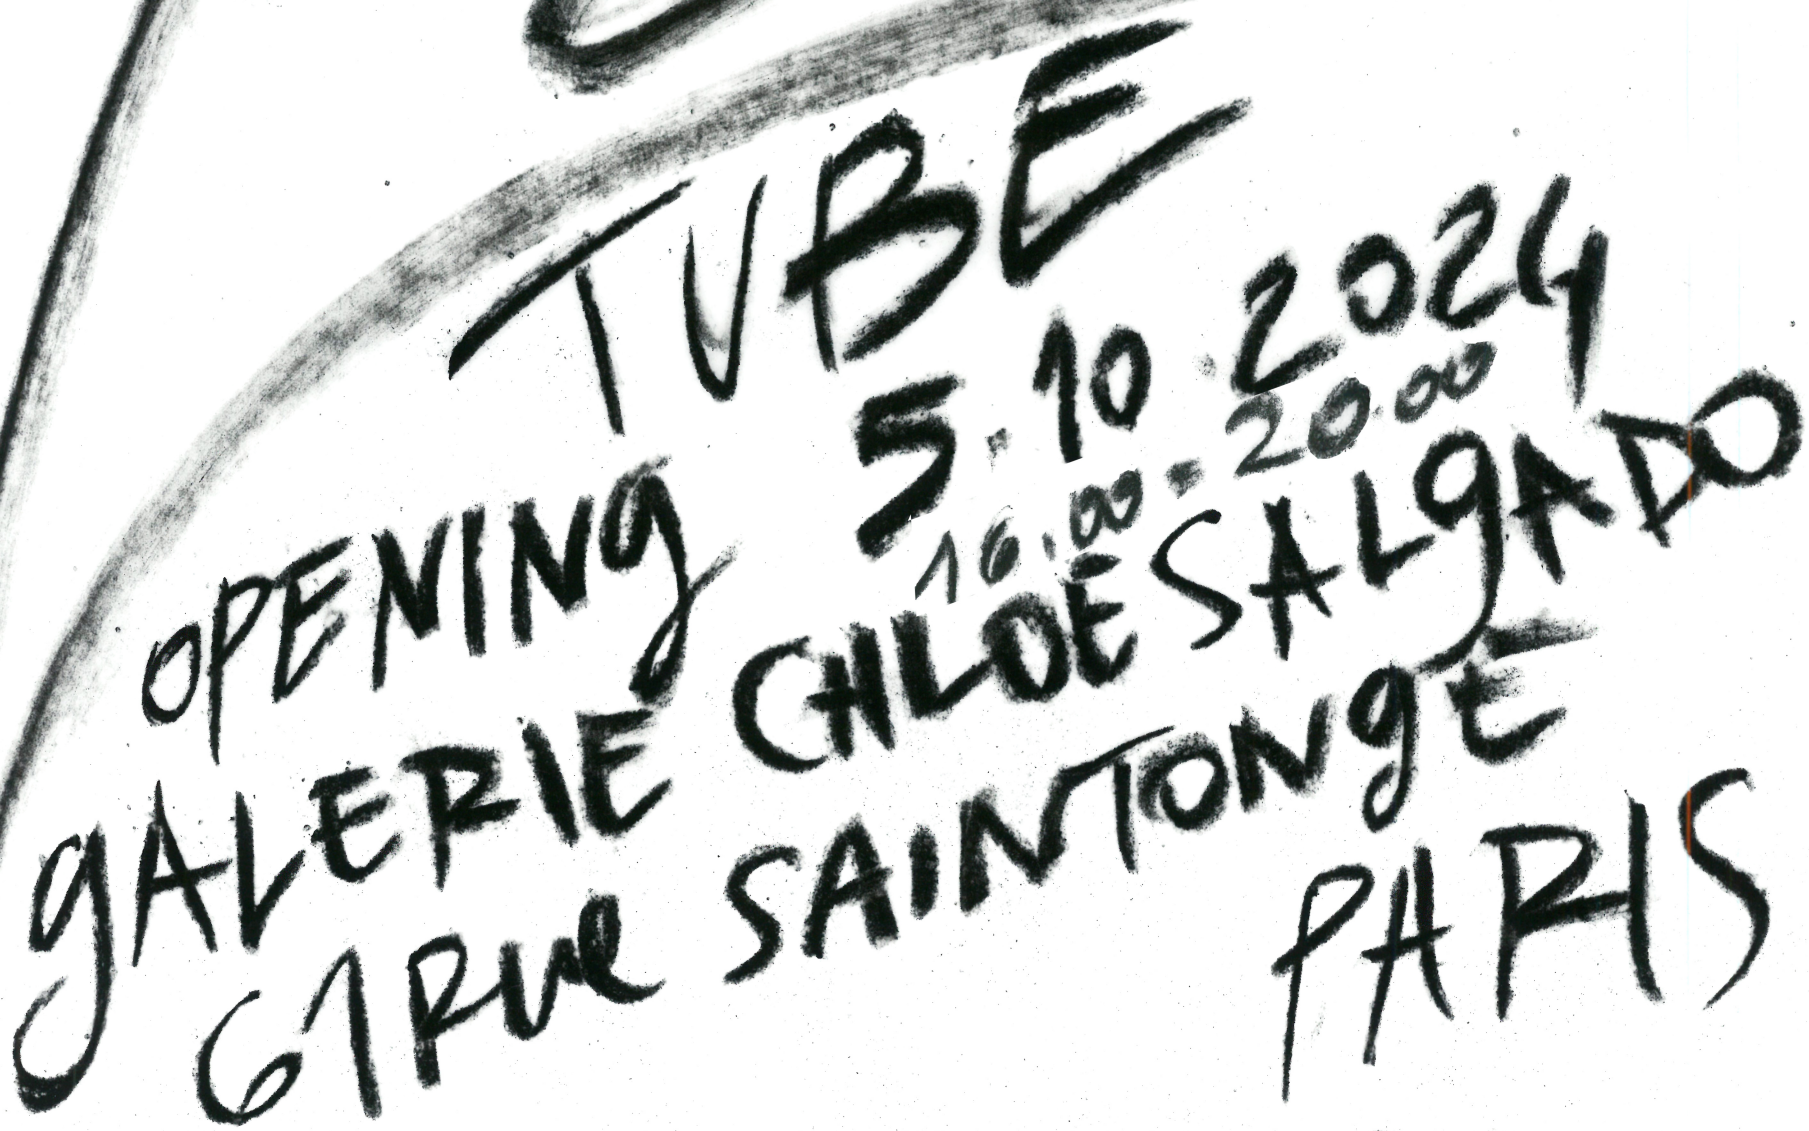 TUBE
OPENING 5.10.2024
16.00-20.00
gALERIE CHLOE SALgADO
61 Rue SAINTONgE
PARIS